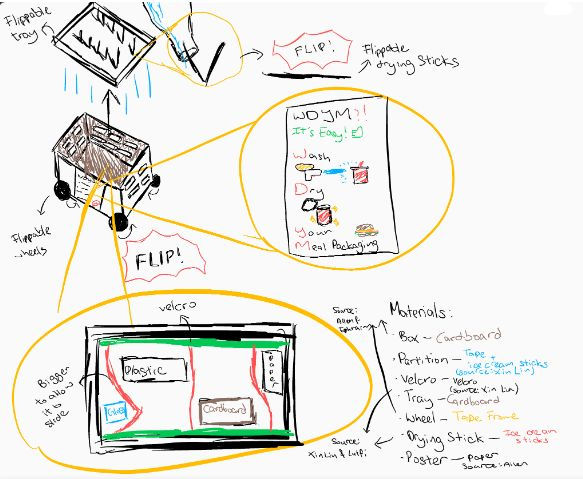 Flippable
tray
FLIP!
Flippable
drying sticks
WDYM?!
It's Easy!
Wash
Dry
Your
Meal Packaging
Flippable
FLIP!
velcro
Plastic
Paper
Cardboard
Bigger
to allow
it to
slide
Source:
Materials:
Box - Cardboard
Partition - Tape
+
ice cream sticks
(source: Xin Lin)
Velcro - Velcro
(source: Xin Lin)
Tray - Cardboard
Wheel - Tape Frame
Drying Stick - Ice cream
sticks
Poster - Paper
Source: